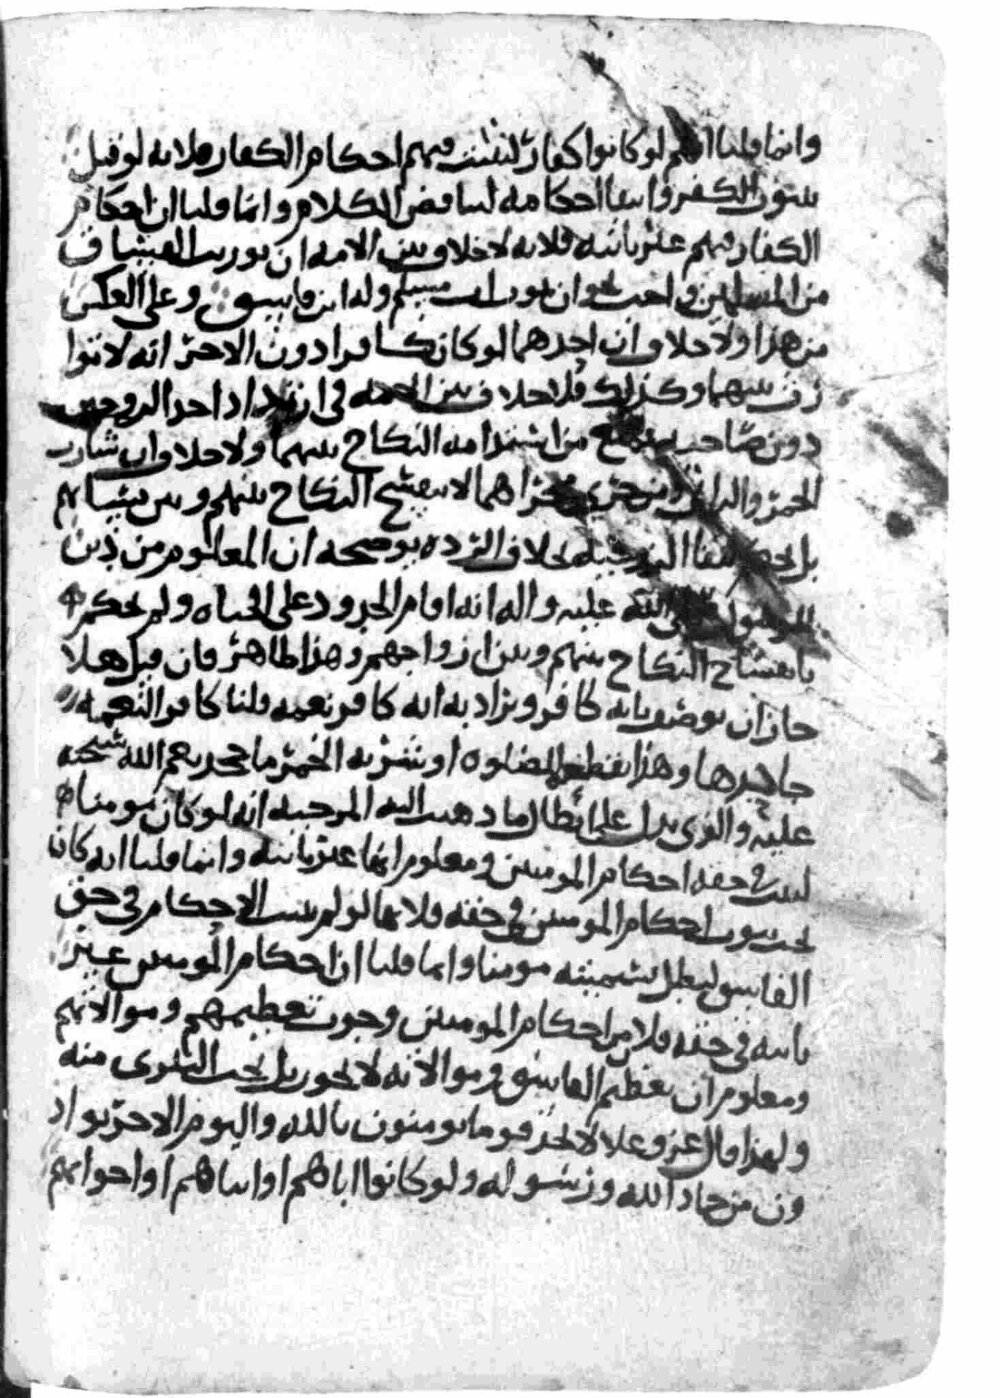 وانما قلنا انهم لو كانوا كفارا لثبتت فيهم احكام الكفار فلانه لو قيل
بثبوت الكفر وانتفا احكامه لتناقض الكلام وانما قلنا ان احكام
الكفار فيهم غير ثابته فلانه لا خلاف بين الامه ان توريث الفساق
من المسلمين واجب نحو ان يموت اب مسلم وله ابن فاسق وعلى العكس
من هذا ولا خلاف ان احدهما لو كان كافرا دون الاخر انه لا توا
رث بينهما وكذلك فلا خلاف بين الامه في ارتداد احد الزوجين
دون صاحبه من استدامه النكاح بينهما ولا خلاف ان شارب
الخمر والزاني ومن جرى مجراهما لا ينفسخ النكاح بينهم وبين نسائهم
بل بقا الزوجيه بخلاف الرده يوضحه ان المعلوم من دين
الرسول صلى الله عليه واله انه اقام الحدود على الجناه ولم يحكم
بانفساخ النكاح بينهم وبين ازواجهم وهذا ظاهر فان قيل هلا
جاز ان يوصف بانه كافر ويراد به انه كافر نعمه قلنا كافر النعمه
جاحدها وهذا بقطع الصلوه او شربه الخمر ما جحد نعم الله سبحنه
عليه والذي يدل على ابطال ما ذهبت اليه المرجيه انه لو كان مومنا
لثبت في حقه احكام المومنين ومعلوم انها غير ثابته وانما قلنا انه كان
يجب ثبوت احكام المومنين في حقه فلانها لو لم تثبت الاحكام في حق
الفاسق لبطل تسميته مومنا وانما قلنا ان احكام المومنين غير
ثابته في حقه فلان من احكام المومنين وجوب تعظيمهم وموالاتهم
ومعلوم ان تعظيم الفاسق وموالاته لا يجوز بل يجب التبري منه
ولهذا قال عز وعلا لا تجد قوما يومنون بالله واليوم الاخر يواد
ون من حاد الله ورسوله ولو كانوا اباهم او ابناهم او اخوانهم